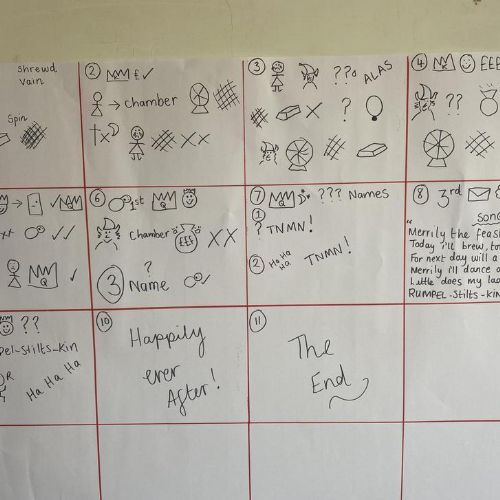 Shrewd
Vain
Spin
② £ ✓
→ chamber
x
x x
③ ??? ALAS
x ?
④ £££
??
→ ✓
✓✓
✓
⑥ 1st Q
Chamber £££ X X
?
③ Name ✓
⑦ Q ??? Names
① ? TNMN!
② Ha Ha Ha TNMN!
⑧ 3rd
song
"Merrily the feas
Today I'll brew, to
For next day will a
Merrily i'll dance a
Little does my la
RUMPEL-STILTS-KIN
??
pel-Stilts-Kin
OR
Ha Ha Ha
⑩ Happily
ever
After!
⑪ The
End